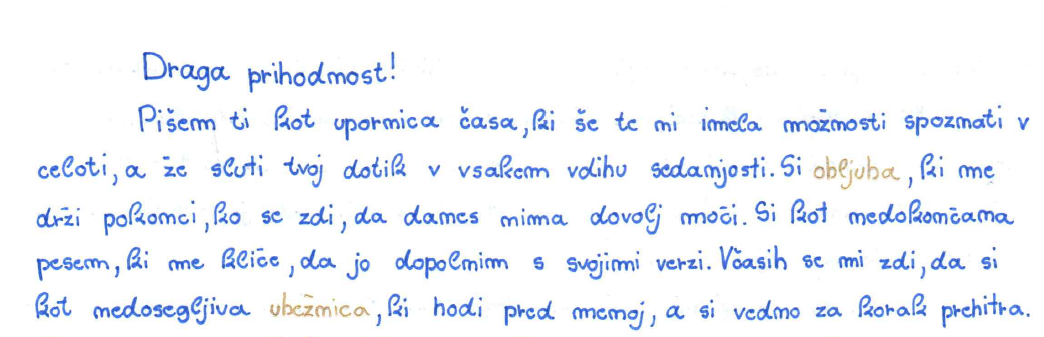 Draga prihodnost!
Pišem ti kot upornica časa, ki še te ni imela možnosti spoznati v
celoti, a že sluti tvoj dotik v vsakem vdihu sedanjosti. Si obljuba, ki me
drži pokonci, ko se zdi, da danes nima dovolj moči. Si kot nedokončana
pesem, ki me kliče, da jo dopolnim s svojimi verzi. Včasih se mi zdi, da si
kot nedosegljiva ubežnica, ki hodi pred menoj, a si vedno za korak prehitra.